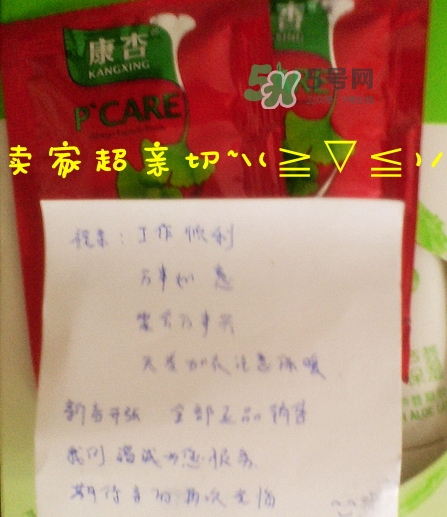 康杏
KANGXING
P'CARE
杏
XING
5H 五号网
卖家超亲切~\(≧▽≦)/
祝亲：工作顺利
万事如意
家和万事兴
天冷加衣注意保暖
新店开张 全部正品销售
我们竭诚为您服务
期待亲的再次光临